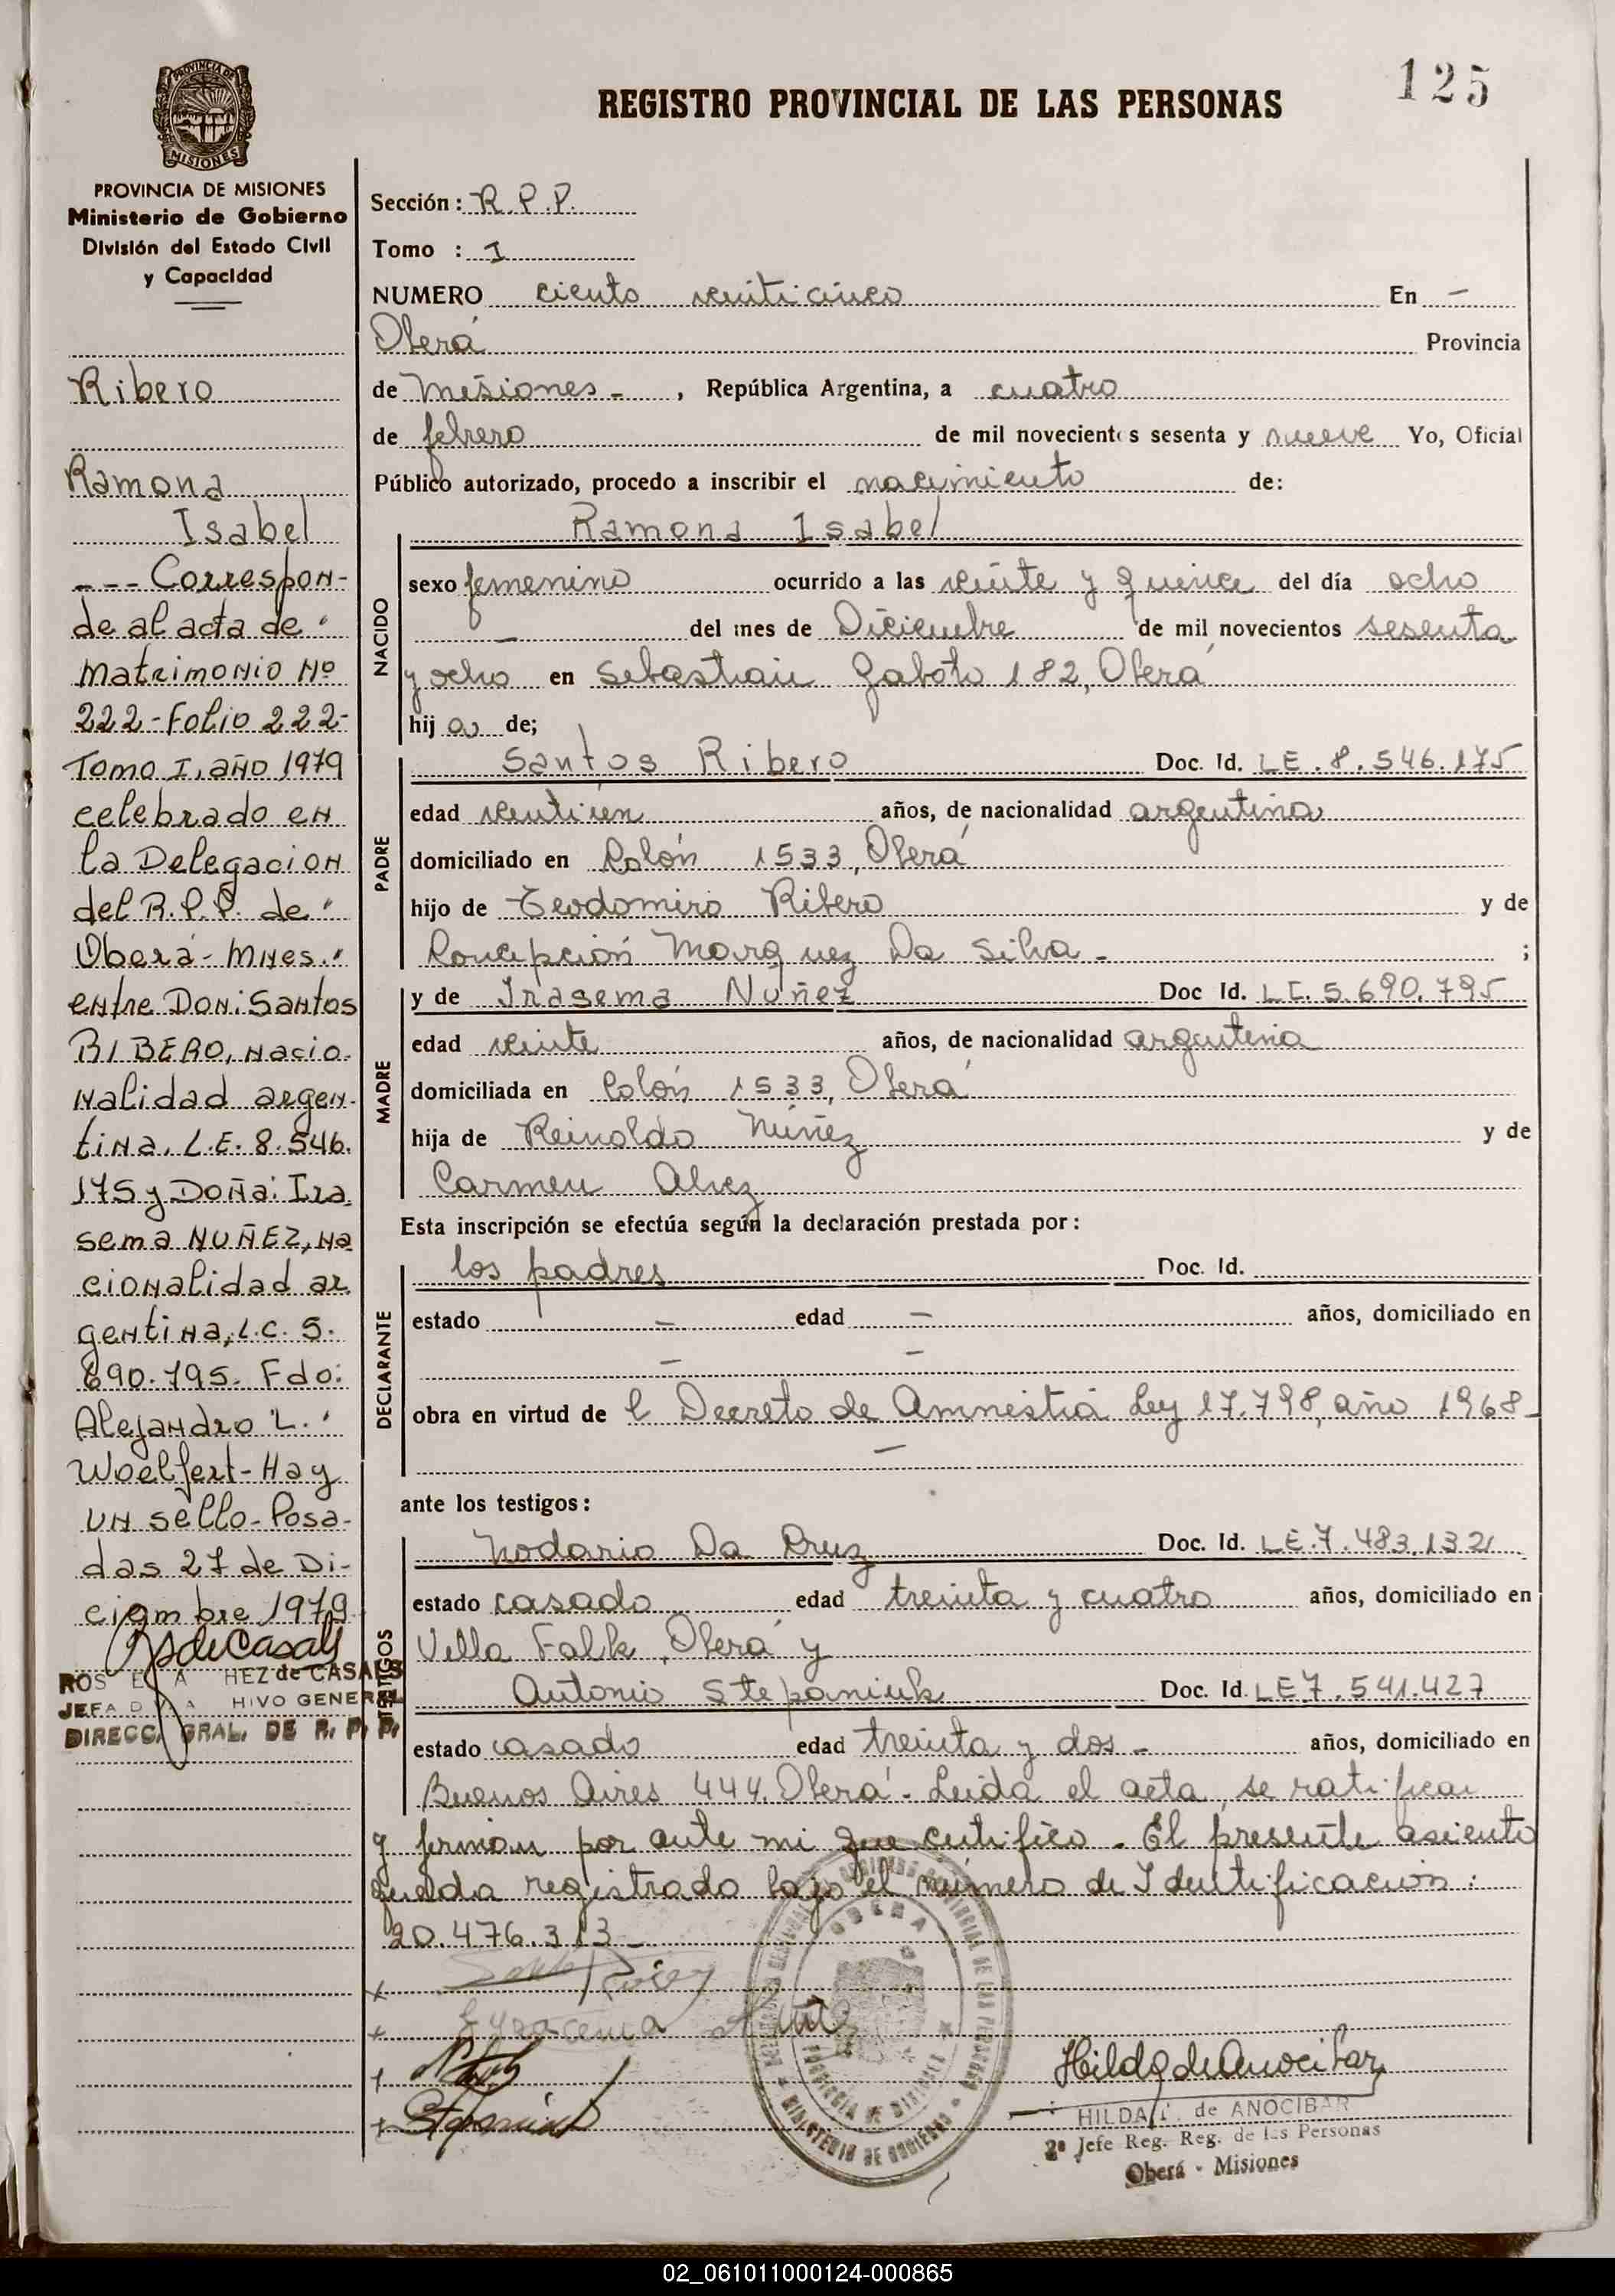 125
REGISTRO PROVINCIAL DE LAS PERSONAS
PROVINCIA DE
MISIONES
PROVINCIA DE MISIONES
Ministerio de Gobierno
División del Estado Civil
y Capacidad
Ribero
Ramona
Isabel
--- Correspon-
de al acta de "
Matrimonio Nº
222-Folio 222-
Tomo I, año 1979
celebrado en
la Delegacion
del R.P.P. de "
Oberá-Mnes."
entre Don: Santos
RIBERO, nacio-
nalidad argen-
tina, L.E. 8.546.
175 y Doña: Ira
sema NUÑEZ, na
cionalidad ar
gentina, L.C. 5.
690.795. Fdo:
Alejandro L. "
Woelfert-Hay
un sello-Posa-
das 27 de Di-
ciembre 1979
de CASALS
JEFA HIVO GENERAL
DIRECC. GRAL. DE R. P. P.
Sección: R.P.P.
Tomo : I
NUMERO ciento veinticinco En -
Oberá Provincia
de Misiones - , República Argentina, a cuatro
de febrero de mil novecientos sesenta y nueve Yo, Oficial
Público autorizado, procedo a inscribir el nacimiento de:
NACIDO
Ramona Isabel
sexo femenino ocurrido a las veinte y quince del día ocho
- del mes de Diciembre de mil novecientos sesenta
y ocho en Sebastian Gaboto 182, Oberá
hija de;
PADRE
Santos Ribero Doc. Id. LE. 8.546.175
edad ventiún años, de nacionalidad argentina
domiciliado en Colón 1533, Oberá
hijo de Teodomiro Ribero y de
Concepción Marquez Da Silva - ;
MADRE
y de Irasema Nuñez Doc Id. LC. 5.690.795
edad veinte años, de nacionalidad argentina
domiciliada en Colón 1533, Oberá
hija de Reinoldo Núñez y de
Carmen Alvez
Esta inscripción se efectúa según la declaración prestada por:
DECLARANTE
los padres Doc. Id.
estado - edad - años, domiciliado en
- -
obra en virtud de l Decreto de Amnistia Ley 17.798, año 1968-
-
ante los testigos:
TESTIGOS
Da Cruz Doc. Id. LE.7.483.132
estado casado edad treinta y cuatro años, domiciliado en
Villa Falk, Oberá y
Antonio Stepaniuk Doc. Id. LE 7.541.427
estado casado edad treinta y dos - años, domiciliado en
Buenos Aires 444, Oberá - Leida el acta, se ratifican
y firman por ante mi que certifico - El presente asiento
queda registrado bajo el número de Identificación:
20.476.313-
OBERA
PROVINCIA DE MISIONES
MINISTERIO DE GOBIERNO
Hilda de Anocibar
HILDA de ANOCIBAR
2º Jefe Reg. Reg. de las Personas
Oberá - Misiones
02_061011000124-000865